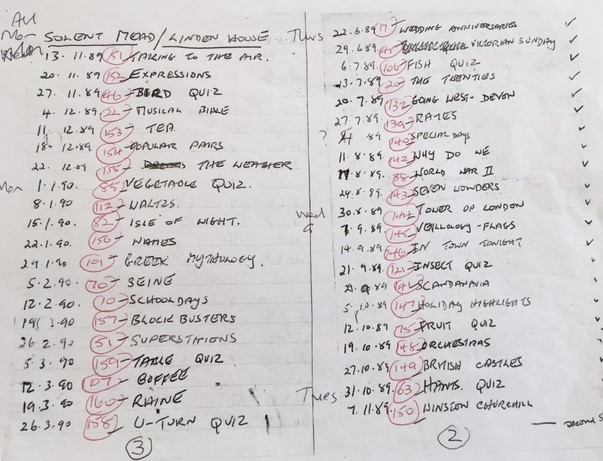 All
Mon SOLENT MEAD/LINDEN HOUSE
13. 11.89 151 - TALKING TO THE AIR.
20. 11.89 152 - EXPRESSIONS
27. 11.89 46 - BIRD QUIZ
4. 12.89 22 - MUSICAL BIBLE
11. 12.89 153 - TEA.
18. 12.89 154 - POPULAR PAIRS
22. 12.89 155 - THE WEATHER
Mon 1.1.90. 85 VEGETABLE QUIZ.
8.1.90 112 - WALTZS.
15.1.90 82 - ISLE OF WIGHT.
22.1.90 156 - NAMES
29.1.90 101 - GREEK MYTHOLOGY.
5.2.90 70 - SEINE
12.2.90. 10 - SCHOOLDAYS
19.2.90 157 - BLOCK BUSTERS
26.2.90 51 - SUPERSTITIONS
5.3.90 159 - TABLE QUIZ
12.3.90 107 - COFFEE
19.3.90 160 - RHINE
26.3.90 158 - U-TURN QUIZ
3
Thurs 22.6.89 17 WEDDING ANNIVERSARIES
29.6.89 VICTORIAN SUNDAY
6.7.89 106 - FISH QUIZ
13.7.89 20 - THE TWENTIES
20.7.89 132 GOING WEST-DEVON
27.7.89 139 - RATES
? 4 8.89 140 SPECIAL DAYS
11.8.89 142 WHY DO WE
17.8.89 88 - WORLD WAR II
24.8.89 143 SEVEN WONDERS
Wed 30.8.89 144 TOWER OF LONDON
9.89 145 VEXILLOLOGY-FLAGS
14.9.89 146 IN TOWN TONIGHT
21.9.89 121 - INSECT QUIZ
9.89 141 SCANDANAVIA
5.10.89 147 HOLIDAY HIGHLIGHTS
12.10.89 75 - FRUIT QUIZ
19.10.89 148 - ORCHESTRAS
27.10.89 149 BRITISH CASTLES
Tues 31.10.89 63 HANTS. QUIZ
7.11.89 150 WINSTON CHURCHILL
2